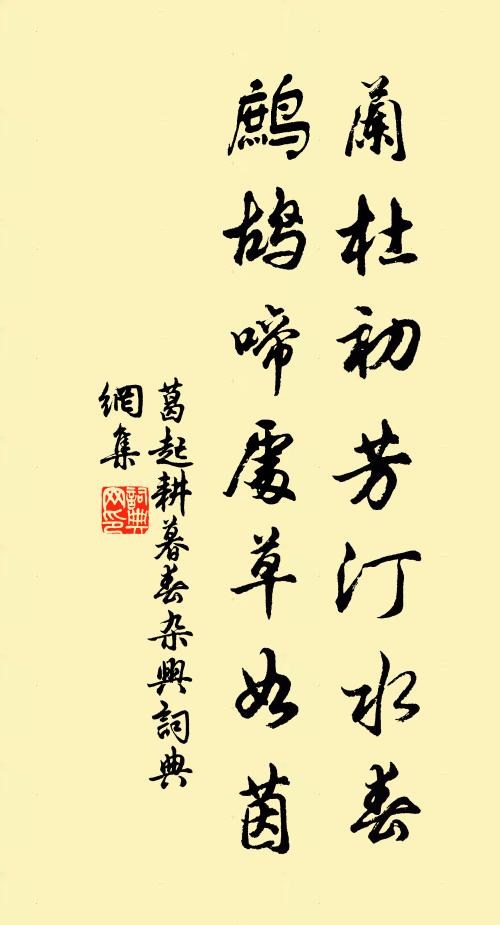 蘭杜初芳汀水春
鷓鴣啼處草如茵
葛起耕暮春杂興詞典
網集
詞典
网印